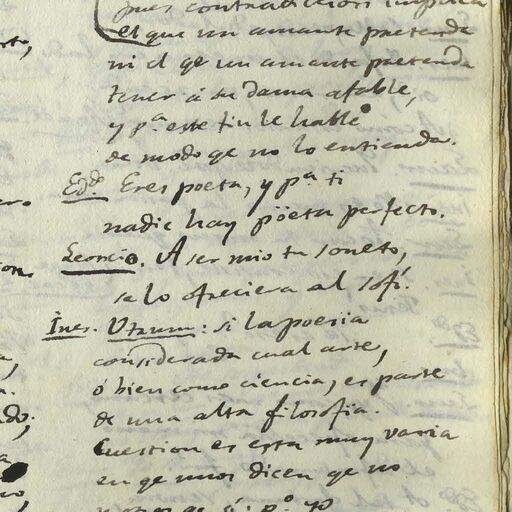 pues contradiccion implica
el que un amante pretenda
ni el qe un amante pretenda
tener á su dama afable,
y pª este fin le hable
de modo qe no lo entienda.
Eres poeta, y pª ti
nadie hay pöeta perfecto.
Leoncio. A ser mio tu soneto,
se lo ofreciera al sofí.
Ines. Utrum: si la poesia
considerada cual arte,
ó bien como ciencia, es parte
de una alta filosofia.
Cuestion es esta muy varia
en qe unos dicen qe no